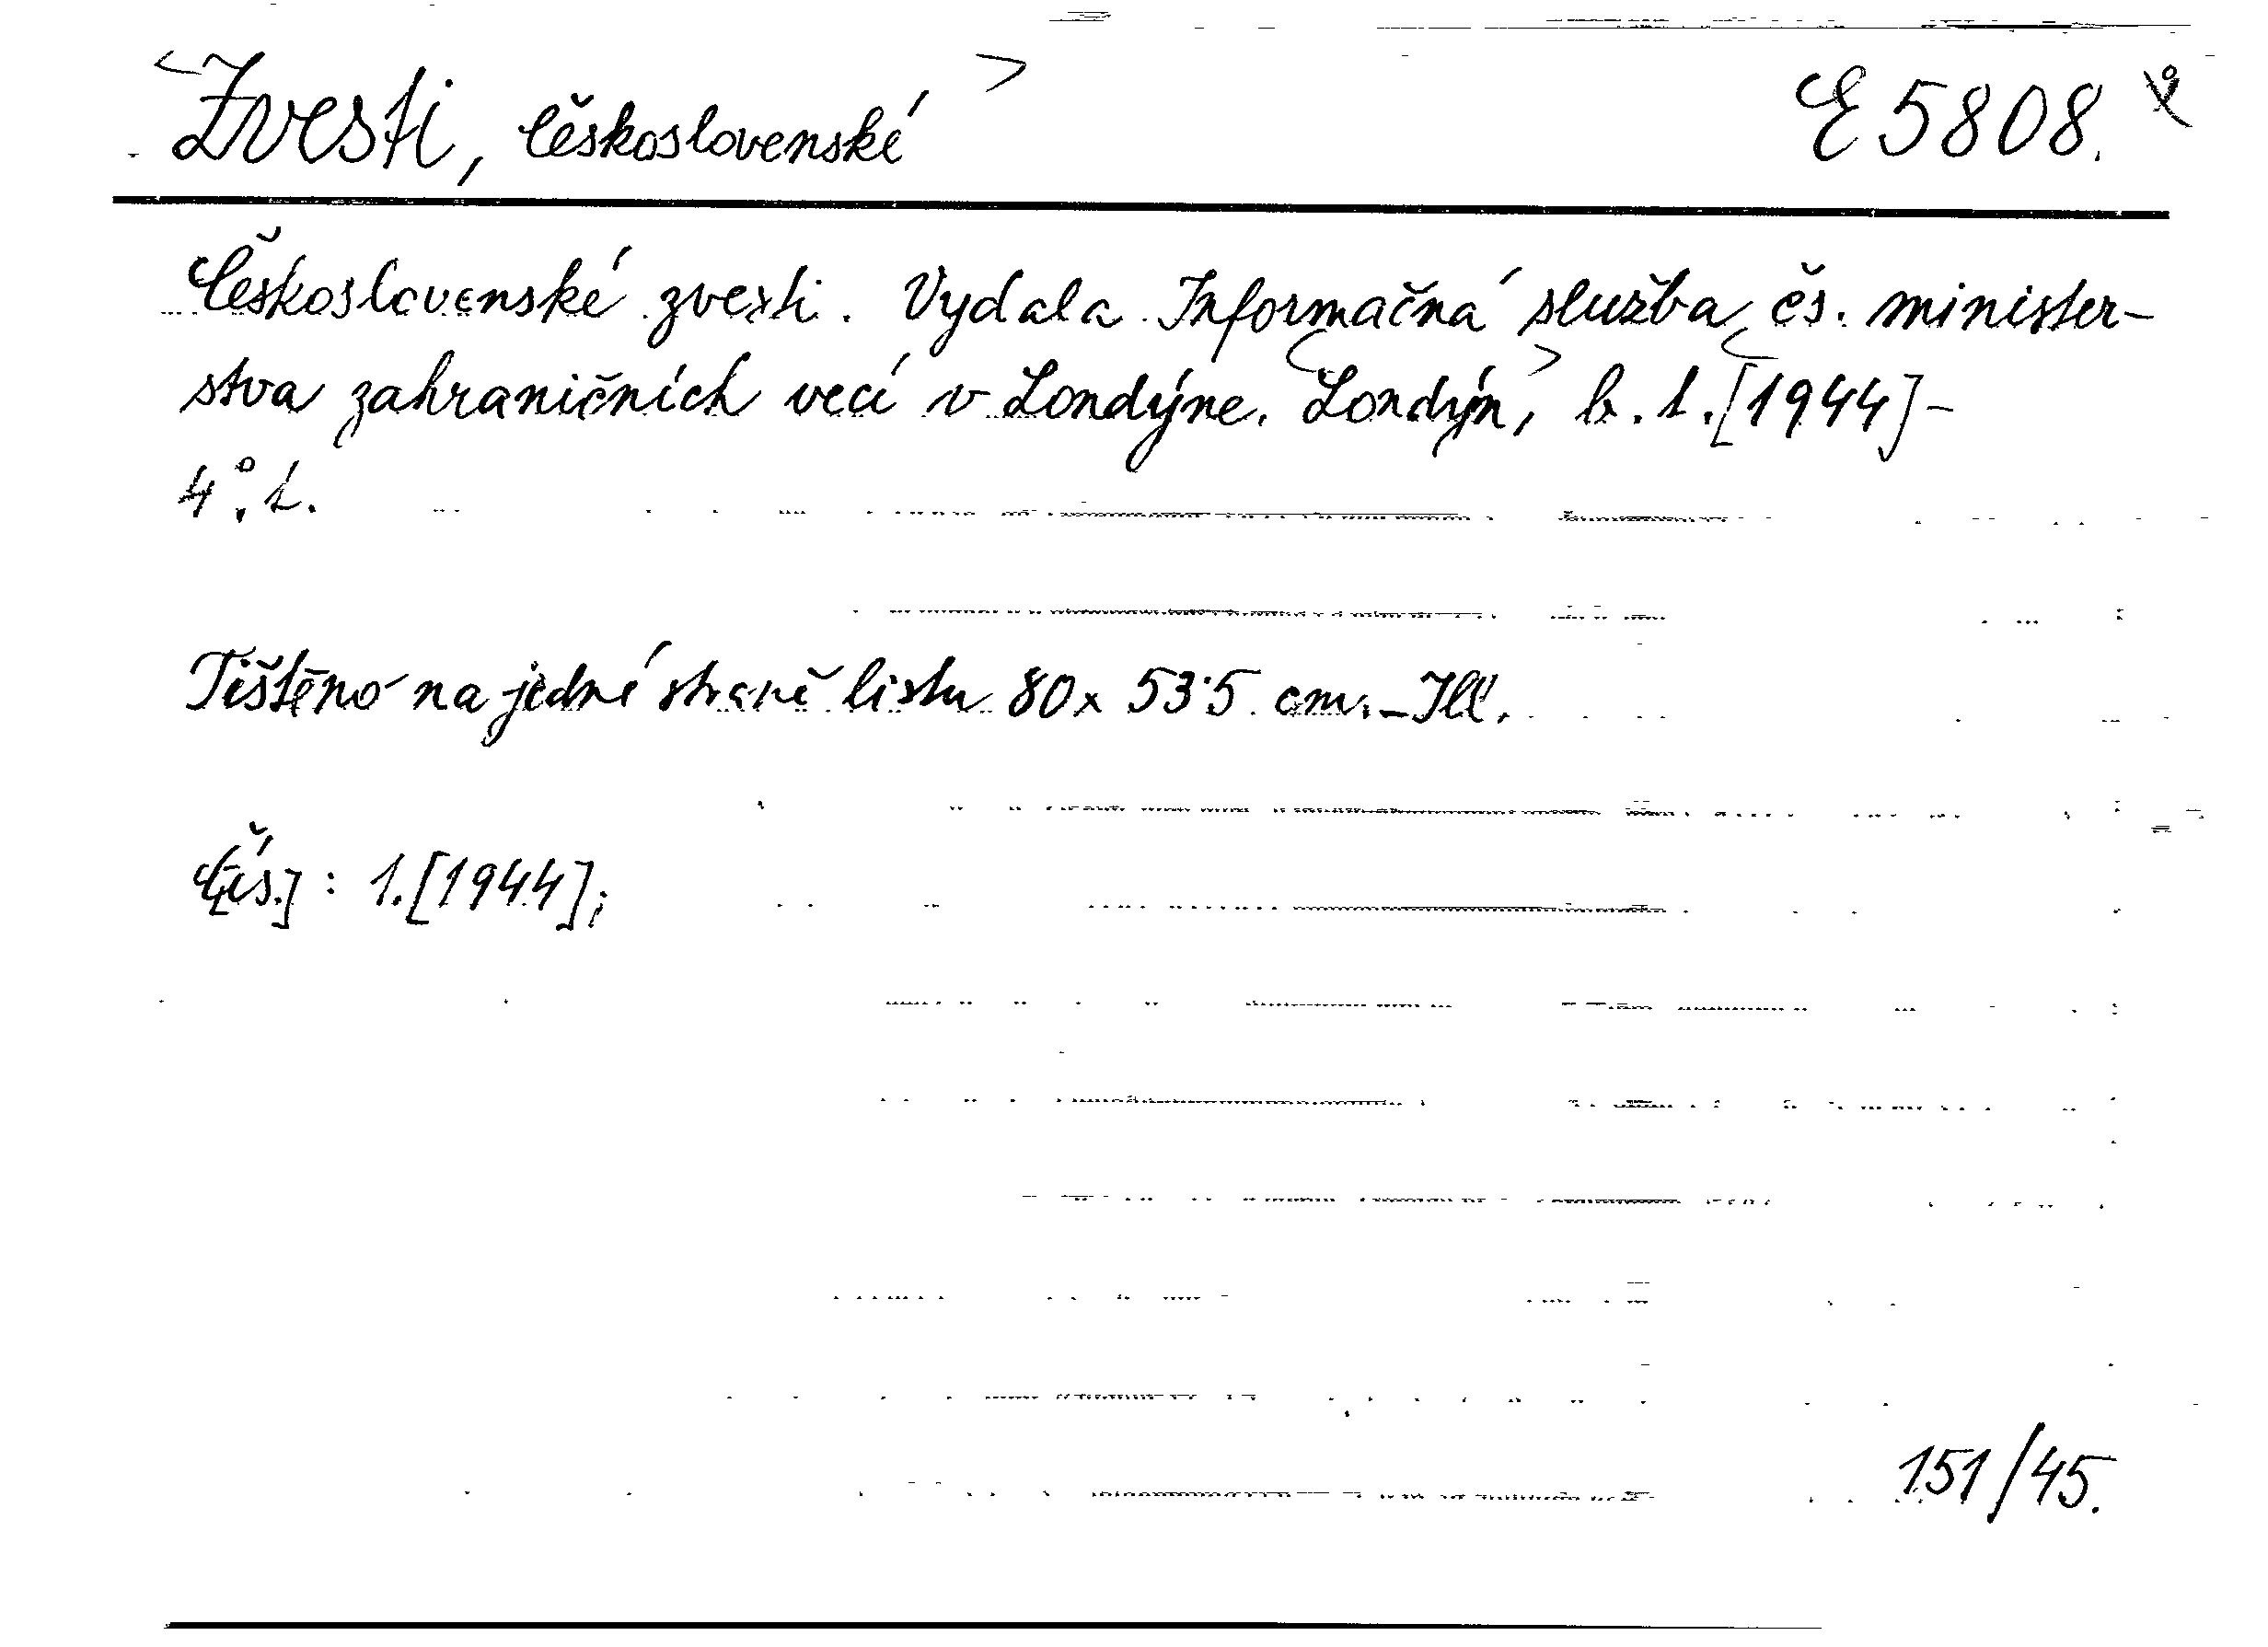 <Zvesti, Československé> E 5808.
Československé zvesti. Vydala Informačná služba čs. minister-
stva zahraničních vecí v Londýne. <Londýn,> b. t. <[1944]-
4°. 1.
Tištěno na jedné straně listu 80 x 53·5 cm. - Ill.
Č[ís.] : 1. [1944];
151/45.